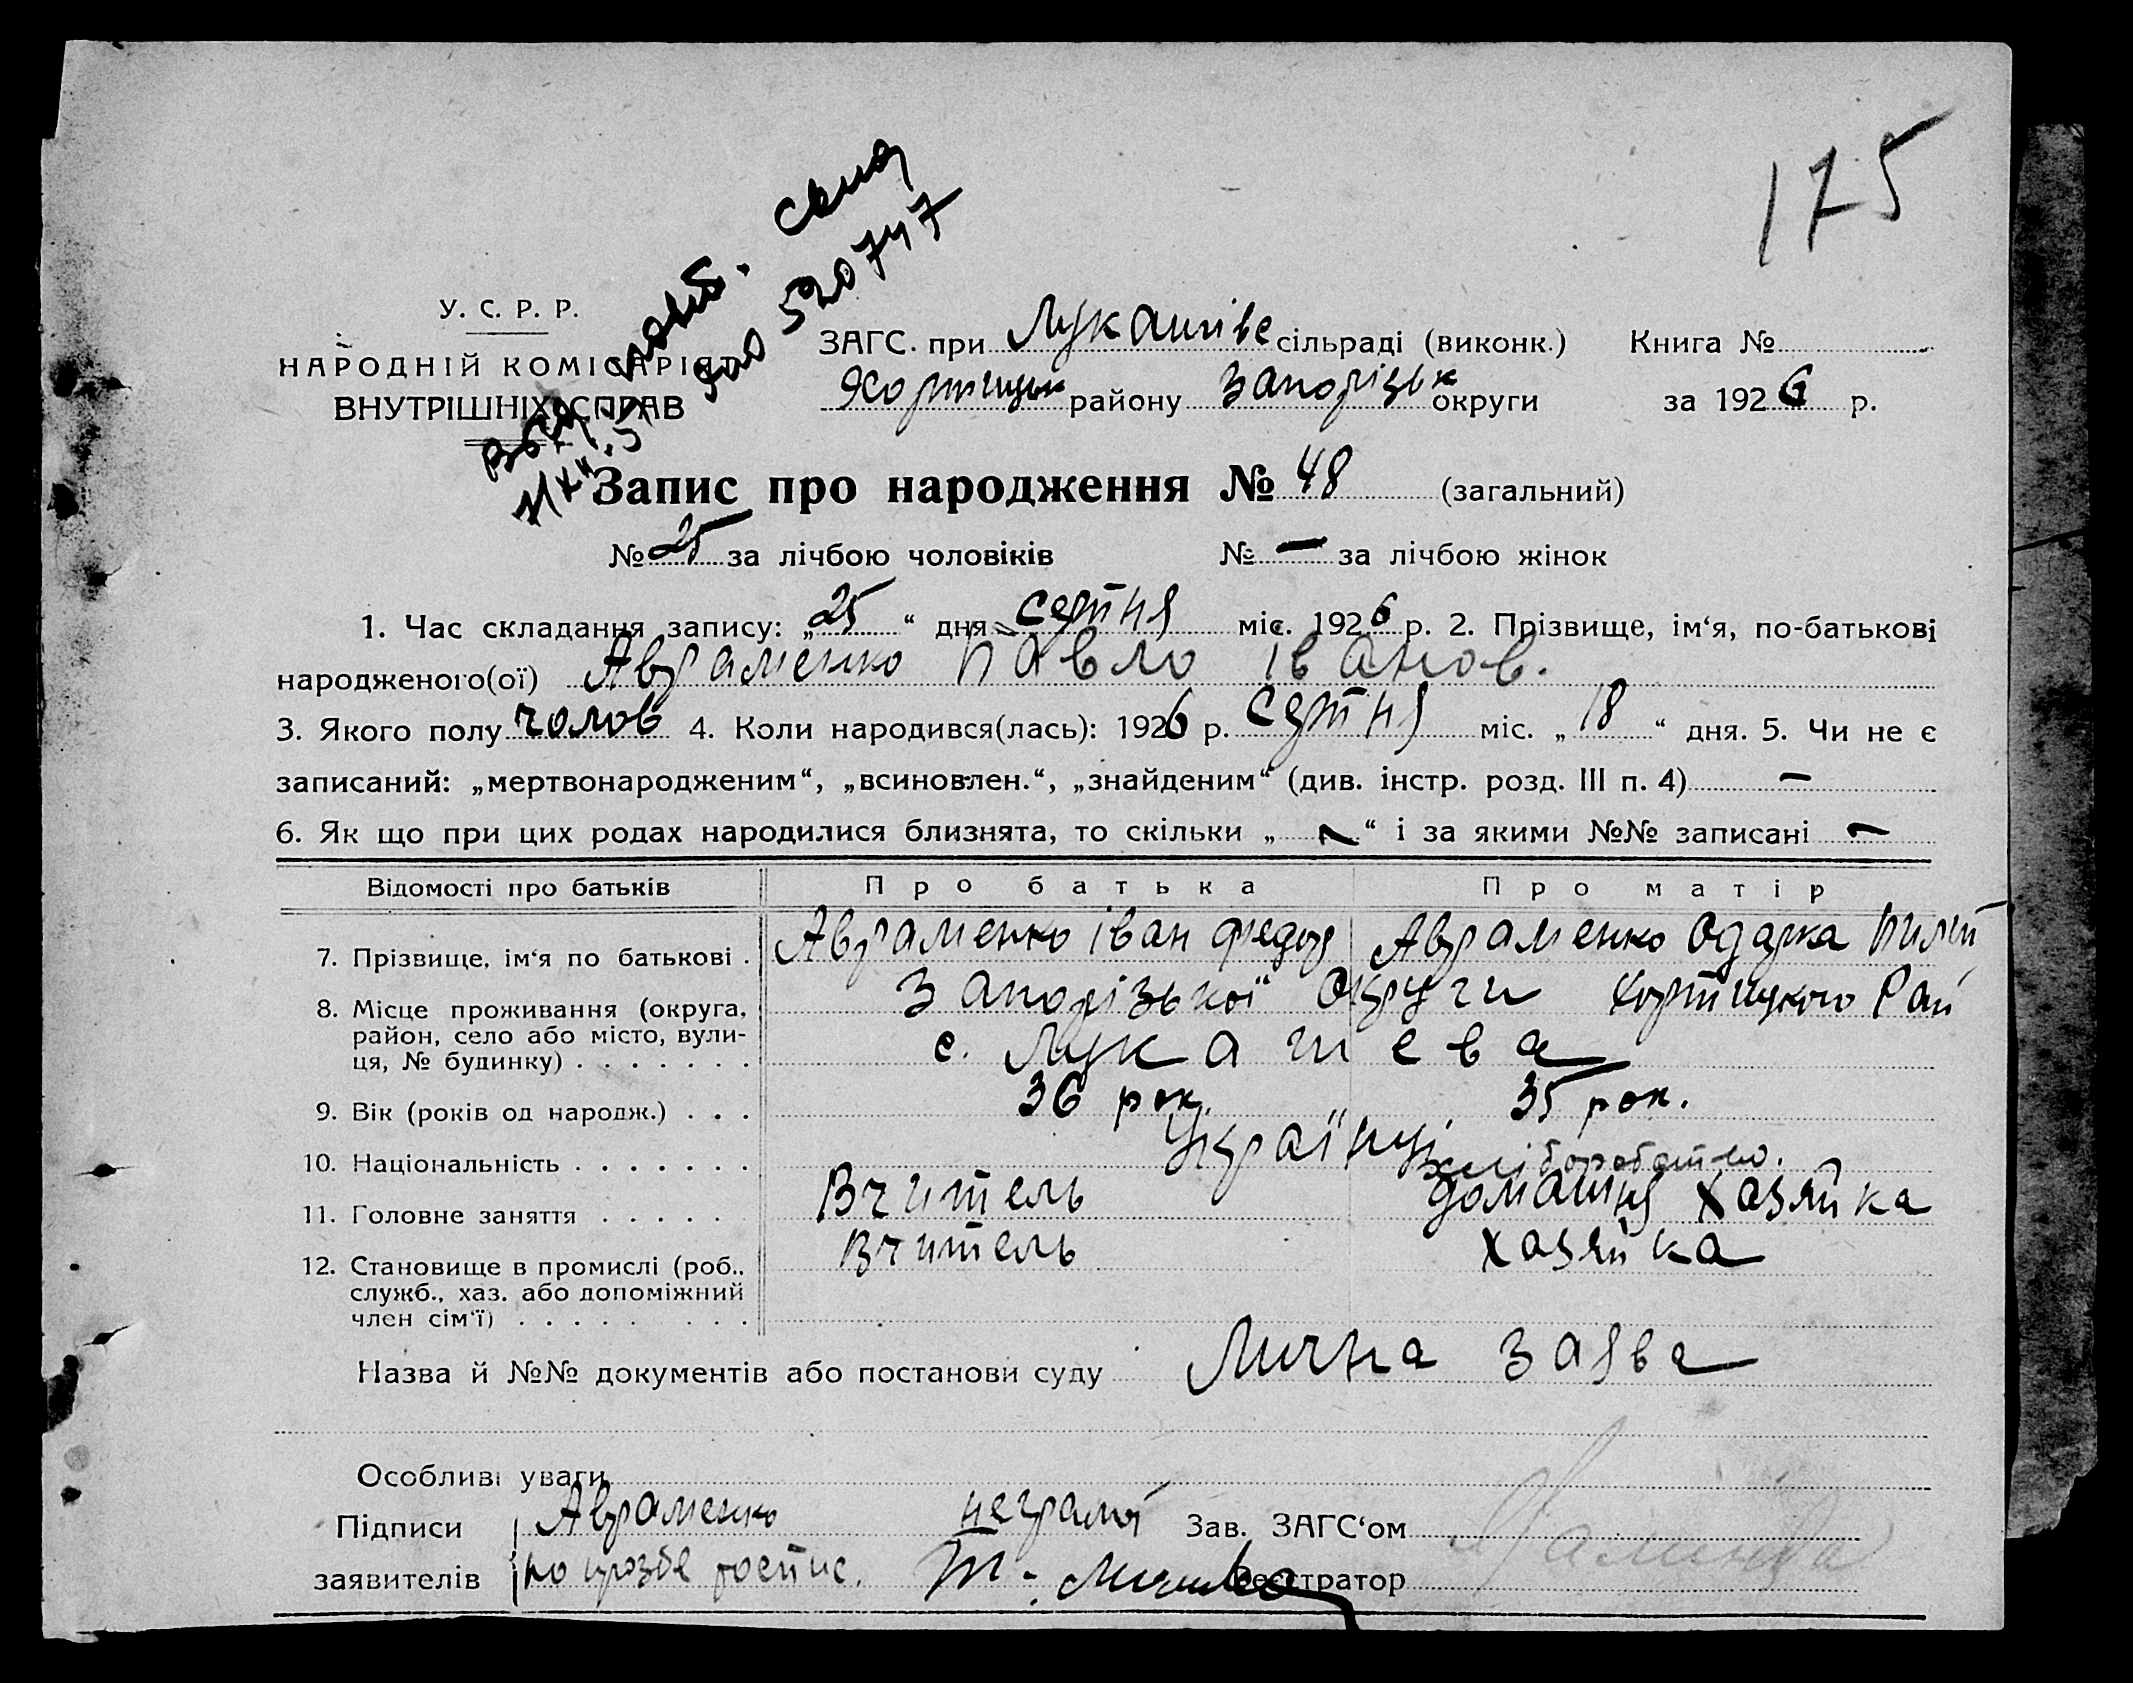 175
повт. свид
520747
У. С. Р. Р.
НАРОДНІЙ КОМІСАРІЯТ
ВНУТРІШНІХ СПРАВ
ЗАГС. при Лукашівс сільраді (виконк.) Книга №
Хортицьк району Запорізьк округи за 1926 р.
Запис про народження № 48 (загальний)
№ 25 за лічбою чоловіків № — за лічбою жінок
1. Час складання запису: „25“ дня серпня міс. 1926 р. 2. Прізвище, ім‘я, по-батькові
народженого(ої) Авраменко Павло Іванов.
3. Якого полу чолов 4. Коли народився(лась): 1926 р. серпня міс. „18“ дня. 5. Чи не є
записаний: „мертвонародженим“, „всиновлен.“, „знайденим“ (див. інстр. розд. III п. 4) —
6. Як що при цих родах народилися близнята, то скільки „—“ і за якими №№ записані —
Відомості про батьків Про батька Про матір
7. Прізвище, ім‘я по батькові . Авраменко Іван Федор Авраменко Одарка Пилип
8. Місце проживання (округа, Запорізької Округи Хортицького Рай
район, село або місто, вули-
ця, № будинку) . . . . . . . с. Лукашева
9. Вік (років од народж.) . . . 36 рок. 35 рок.
10. Національність . . . . . . . Українці
11. Головне заняття . . . . . Вчитель домашня хазяйка
12. Становище в промислі (роб., Вчитель хазяйка
служб., хаз. або допоміжний
член сім‘ї) . . . . . . . .
Назва й №№ документів або постанови суду Лична заява
Особливі уваги
Підписи Авраменко неграмот Зав. ЗАГС‘ом
заявителів по прозбе роспис. Реєстратор